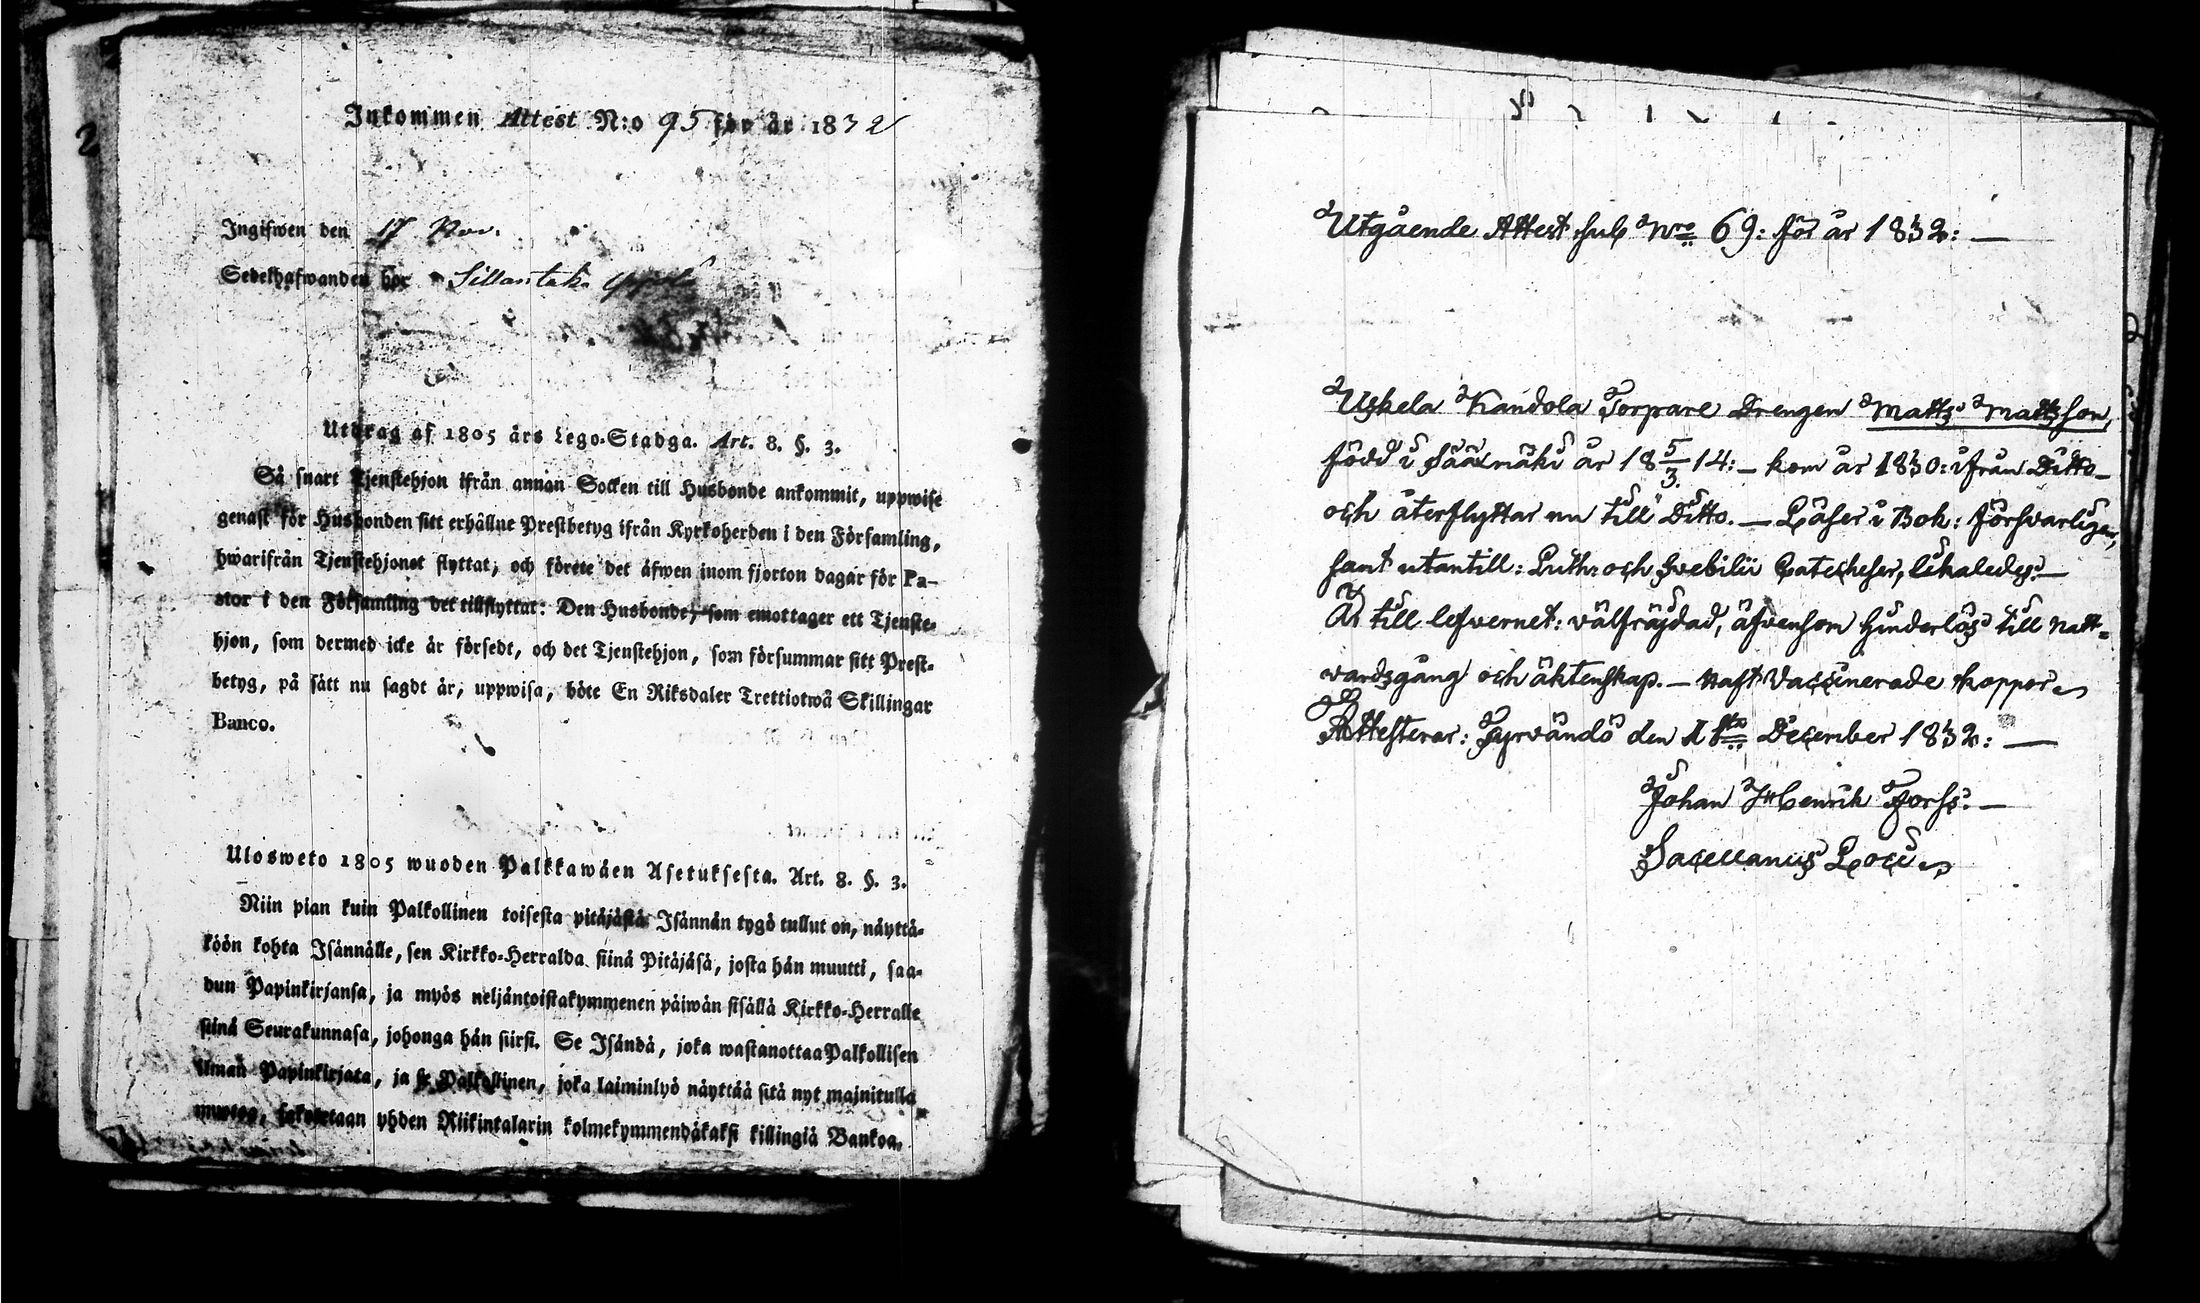 2
Inkommen Attest N:o 95 för år 1832
Ingifwen den 17 Nov.
Sedelhafwanden bor Sillantaka
Utdrag af 1805 års Lego-Stadga. Art. 8. §. 3.
Så snart Tjenstehjon ifrån annan Socken till Husbonde ankommit, uppwise
genast för Husbonden sitt erhållne Prestbetyg ifrån Kyrkoherden i den Församling,
hwarifrån Tjenstehjonet flyttat, och förete det äfwen inom fjorton dagar för Pa-
stor i den Församling det tillflyttat: Den Husbonde, som emottager ett Tjenste-
hjon, som dermed icke är försedt, och det Tjenstehjon, som försummar sitt Prest-
betyg, på sätt nu sagdt är, uppwisa, böte En Riksdaler Trettiotwå Skillingar
Banco.
Ulosweto 1805 wuoden Palkkawäen Asetuksesta. Art. 8. §. 3.
Niin pian kuin Palkollinen toisesta pitäjästä Isännän tygö tullut on, näyttä-
köön kohta Isännälle, sen Kirkko-Herralda siinä Pitäjäsä, josta hän muutti, saa-
dun Papinkirjansa, ja myös neljäntoistakymmenen päiwän sisällä Kirkko-Herralle
siinä Seurakunnasa, johonga hän siirsi. Se Isändä, joka wastanottaa Palkollisen
ilman Papinkirjata, ja se Palkollinen, joka laiminlyö näyttää sitä nyt mainitulla
muotoa, sakotetaan yhden Riikintalarin kolmekymmendäkaksi killingiä Bankoa.
Utgående Attest sub Nro 69: för år 1832: —
Uskela Kandola Torpare Drengen Matts Mattsson,
född i Sääxmäki år 18 5/3 14: — kom år 1830: ifrån Ditto —
och återflyttar nu till Ditto. — Läser i Bok: försvarligen,
samt utantill: Luth: och Svebilii Catecheser, likaledes: —
Är till lefvernet: välfräjdad, äfvensom hinderlös till Natt=
vardsgång och äktenskap. — Haft Vaccinerade koppor
Attesterar: Tyrvändö den 1sta December 1832: —
Johan Henrik Forss: —
Sacellanus Loci